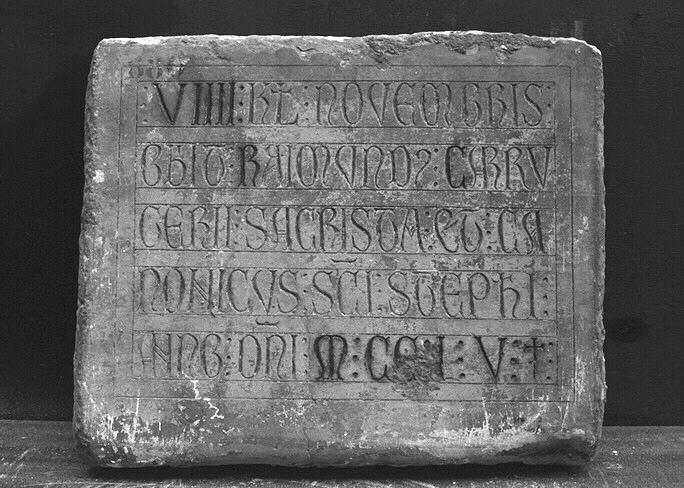 : VIIII : KL : NOVEMBRIS :
OBIIT : RAIMUNDꝰ : CARRU
GERII : SACRISTA : ET : CA
NONICVS : SCI : STEPHI :
ANNO : DNI : M : CC : L : V : †